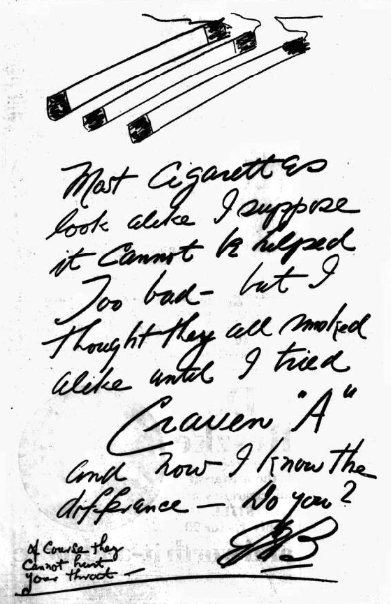 Most Cigarettes
look alike I suppose
it Cannot be helped
Too bad - but I
thought they all smoked
alike until I tried
Craven "A"
and now I know the
difference — Do you?
of Course they
Cannot hurt
your throat —